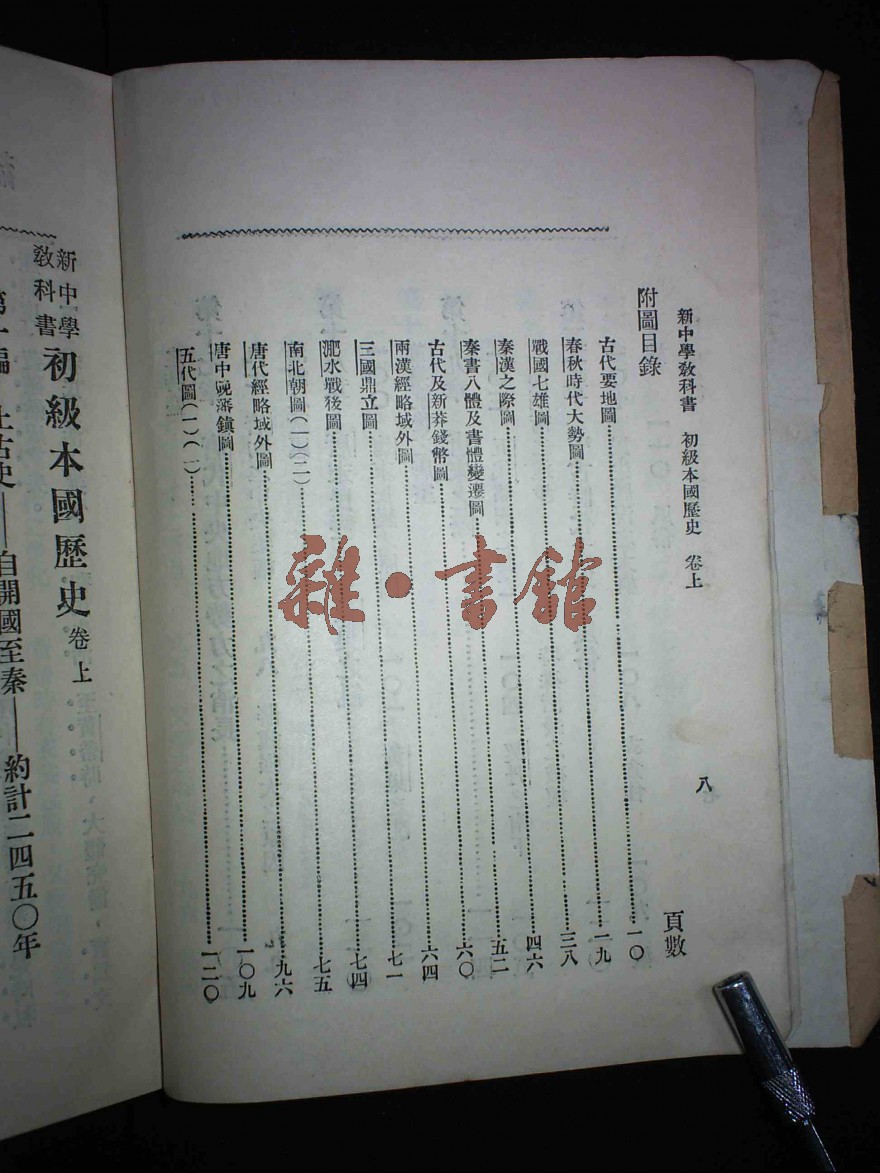 新中學教科書 初級本國歷史 卷上 八
附圖目錄 頁數
古代要地圖……一〇
春秋時代大勢圖……一九
戰國七雄圖……三八
秦漢之際圖……四六
秦書八體及書體變遷圖……五二
古代及新莽錢幣圖……六〇
兩漢經略域外圖……六四
三國鼎立圖……七一
淝水戰後圖……七四
南北朝圖(一)(二)……七五
唐代經略域外圖……九六
唐中晚藩鎮圖……一〇九
五代圖(一)(一)……一二〇
新中學教科書 初級本國歷史 卷上
第一編 上古史——自開國至秦——約計二四五〇年
雜·書館